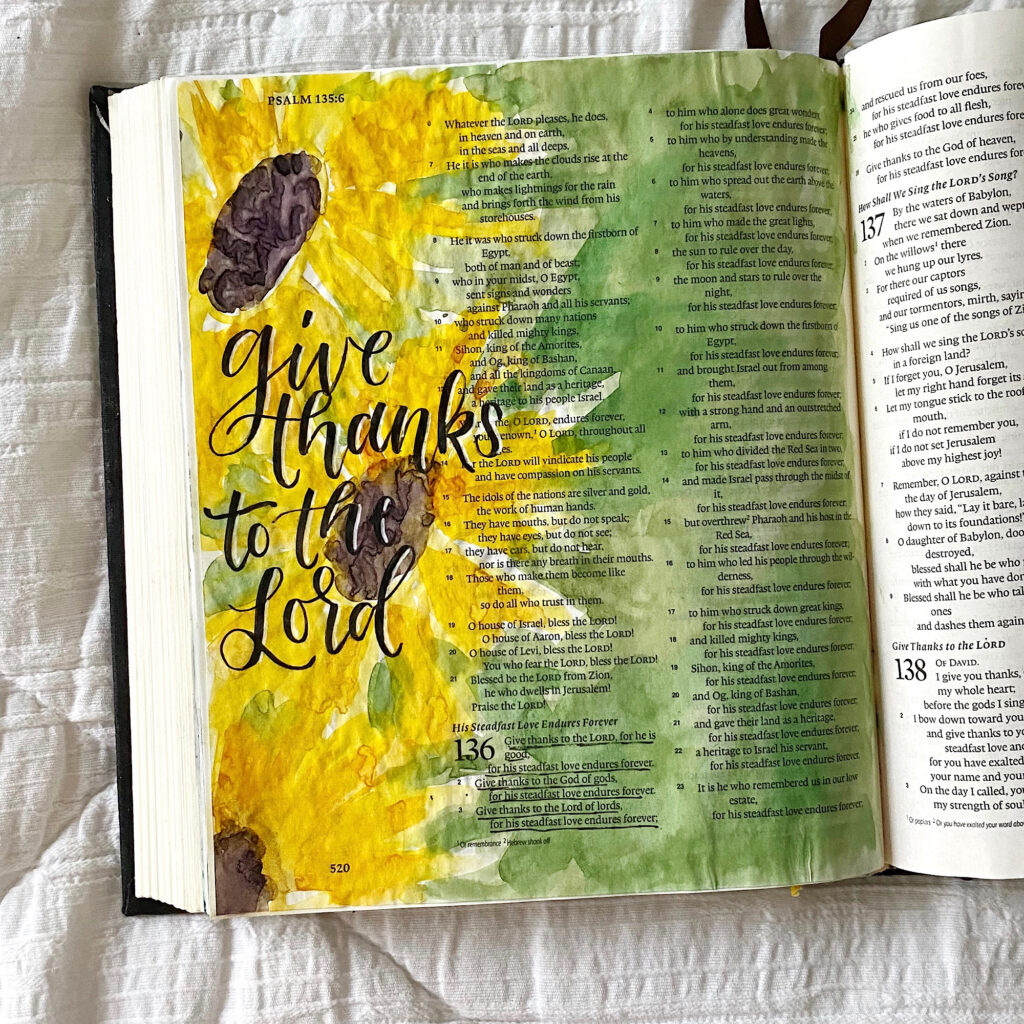 PSALM 135:6
give
thanks
to the
Lord
6 Whatever the LORD pleases, he does,
in heaven and on earth,
in the seas and all deeps.
7 He it is who makes the clouds rise at the
end of the earth,
who makes lightnings for the rain
and brings forth the wind from his
storehouses.
8 He it was who struck down the firstborn of
Egypt,
both of man and of beast;
9 who in your midst, O Egypt,
sent signs and wonders
against Pharaoh and all his servants;
10 who struck down many nations
and killed mighty kings,
11 Sihon, king of the Amorites,
and Og, king of Bashan,
and all the kingdoms of Canaan,
12 and gave their land as a heritage,
a heritage to his people Israel.
me, O LORD, endures forever,
renown,1 O LORD, throughout all
14 the LORD will vindicate his people
and have compassion on his servants.
15 The idols of the nations are silver and gold,
the work of human hands.
16 They have mouths, but do not speak;
they have eyes, but do not see;
17 they have ears, but do not hear,
nor is there any breath in their mouths.
18 Those who make them become like
them,
so do all who trust in them.
19 O house of Israel, bless the LORD!
O house of Aaron, bless the LORD!
20 O house of Levi, bless the LORD!
You who fear the LORD, bless the LORD!
21 Blessed be the LORD from Zion,
he who dwells in Jerusalem!
Praise the LORD!
His Steadfast Love Endures Forever
136 Give thanks to the LORD, for he is
good,
for his steadfast love endures forever.
2 Give thanks to the God of gods,
for his steadfast love endures forever.
3 Give thanks to the Lord of lords,
for his steadfast love endures forever;
1 Or remembrance 2 Hebrew shook off
520
4 to him who alone does great wonders,
for his steadfast love endures forever;
5 to him who by understanding made the
heavens,
for his steadfast love endures forever;
6 to him who spread out the earth above the
waters,
for his steadfast love endures forever;
7 to him who made the great lights,
for his steadfast love endures forever;
8 the sun to rule over the day,
for his steadfast love endures forever;
9 the moon and stars to rule over the
night,
for his steadfast love endures forever;
10 to him who struck down the firstborn of
Egypt,
for his steadfast love endures forever;
11 and brought Israel out from among
them,
for his steadfast love endures forever;
12 with a strong hand and an outstretched
arm,
for his steadfast love endures forever;
13 to him who divided the Red Sea in two,
for his steadfast love endures forever;
14 and made Israel pass through the midst of
it,
for his steadfast love endures forever;
15 but overthrew2 Pharaoh and his host in the
Red Sea,
for his steadfast love endures forever;
16 to him who led his people through the wil-
derness,
for his steadfast love endures forever;
17 to him who struck down great kings,
for his steadfast love endures forever;
18 and killed mighty kings,
for his steadfast love endures forever;
19 Sihon, king of the Amorites,
for his steadfast love endures forever;
20 and Og, king of Bashan,
for his steadfast love endures forever;
21 and gave their land as a heritage,
for his steadfast love endures forever;
22 a heritage to Israel his servant,
for his steadfast love endures forever.
23 It is he who remembered us in our low
estate,
for his steadfast love endures forever;
24 and rescued us from our foes,
for his steadfast love endures
25 he who gives food to all flesh,
for his steadfast love endures
26 Give thanks to the God of heaven,
for his steadfast love endures
How Shall We Sing the LORD's Song?
137 By the waters of Babylon,
there we sat down and wept
when we remembered Zion.
2 On the willows1 there
we hung up our lyres.
3 For there our captors
required of us songs,
and our tormentors, mirth,
"Sing us one of the songs of
4 How shall we sing the LORD's
in a foreign land?
5 If I forget you, O Jerusalem,
let my right hand forget its
6 Let my tongue stick to the
mouth,
if I do not remember you,
if I do not set Jerusalem
above my highest joy!
7 Remember, O LORD, against
the day of Jerusalem,
how they said, "Lay it bare,
down to its foundations!"
8 O daughter of Babylon,
destroyed,
blessed shall he be who
with what you have
9 Blessed shall he be who
ones
and dashes them
Give Thanks to the LORD
138 OF DAVID.
I give you thanks,
my whole heart;
before the gods I sing
2 I bow down toward
and give thanks to
steadfast love
for you have exalted
your name and
3 On the day I called,
my strength of
1 Or poplars 2 Or you have exalted your word